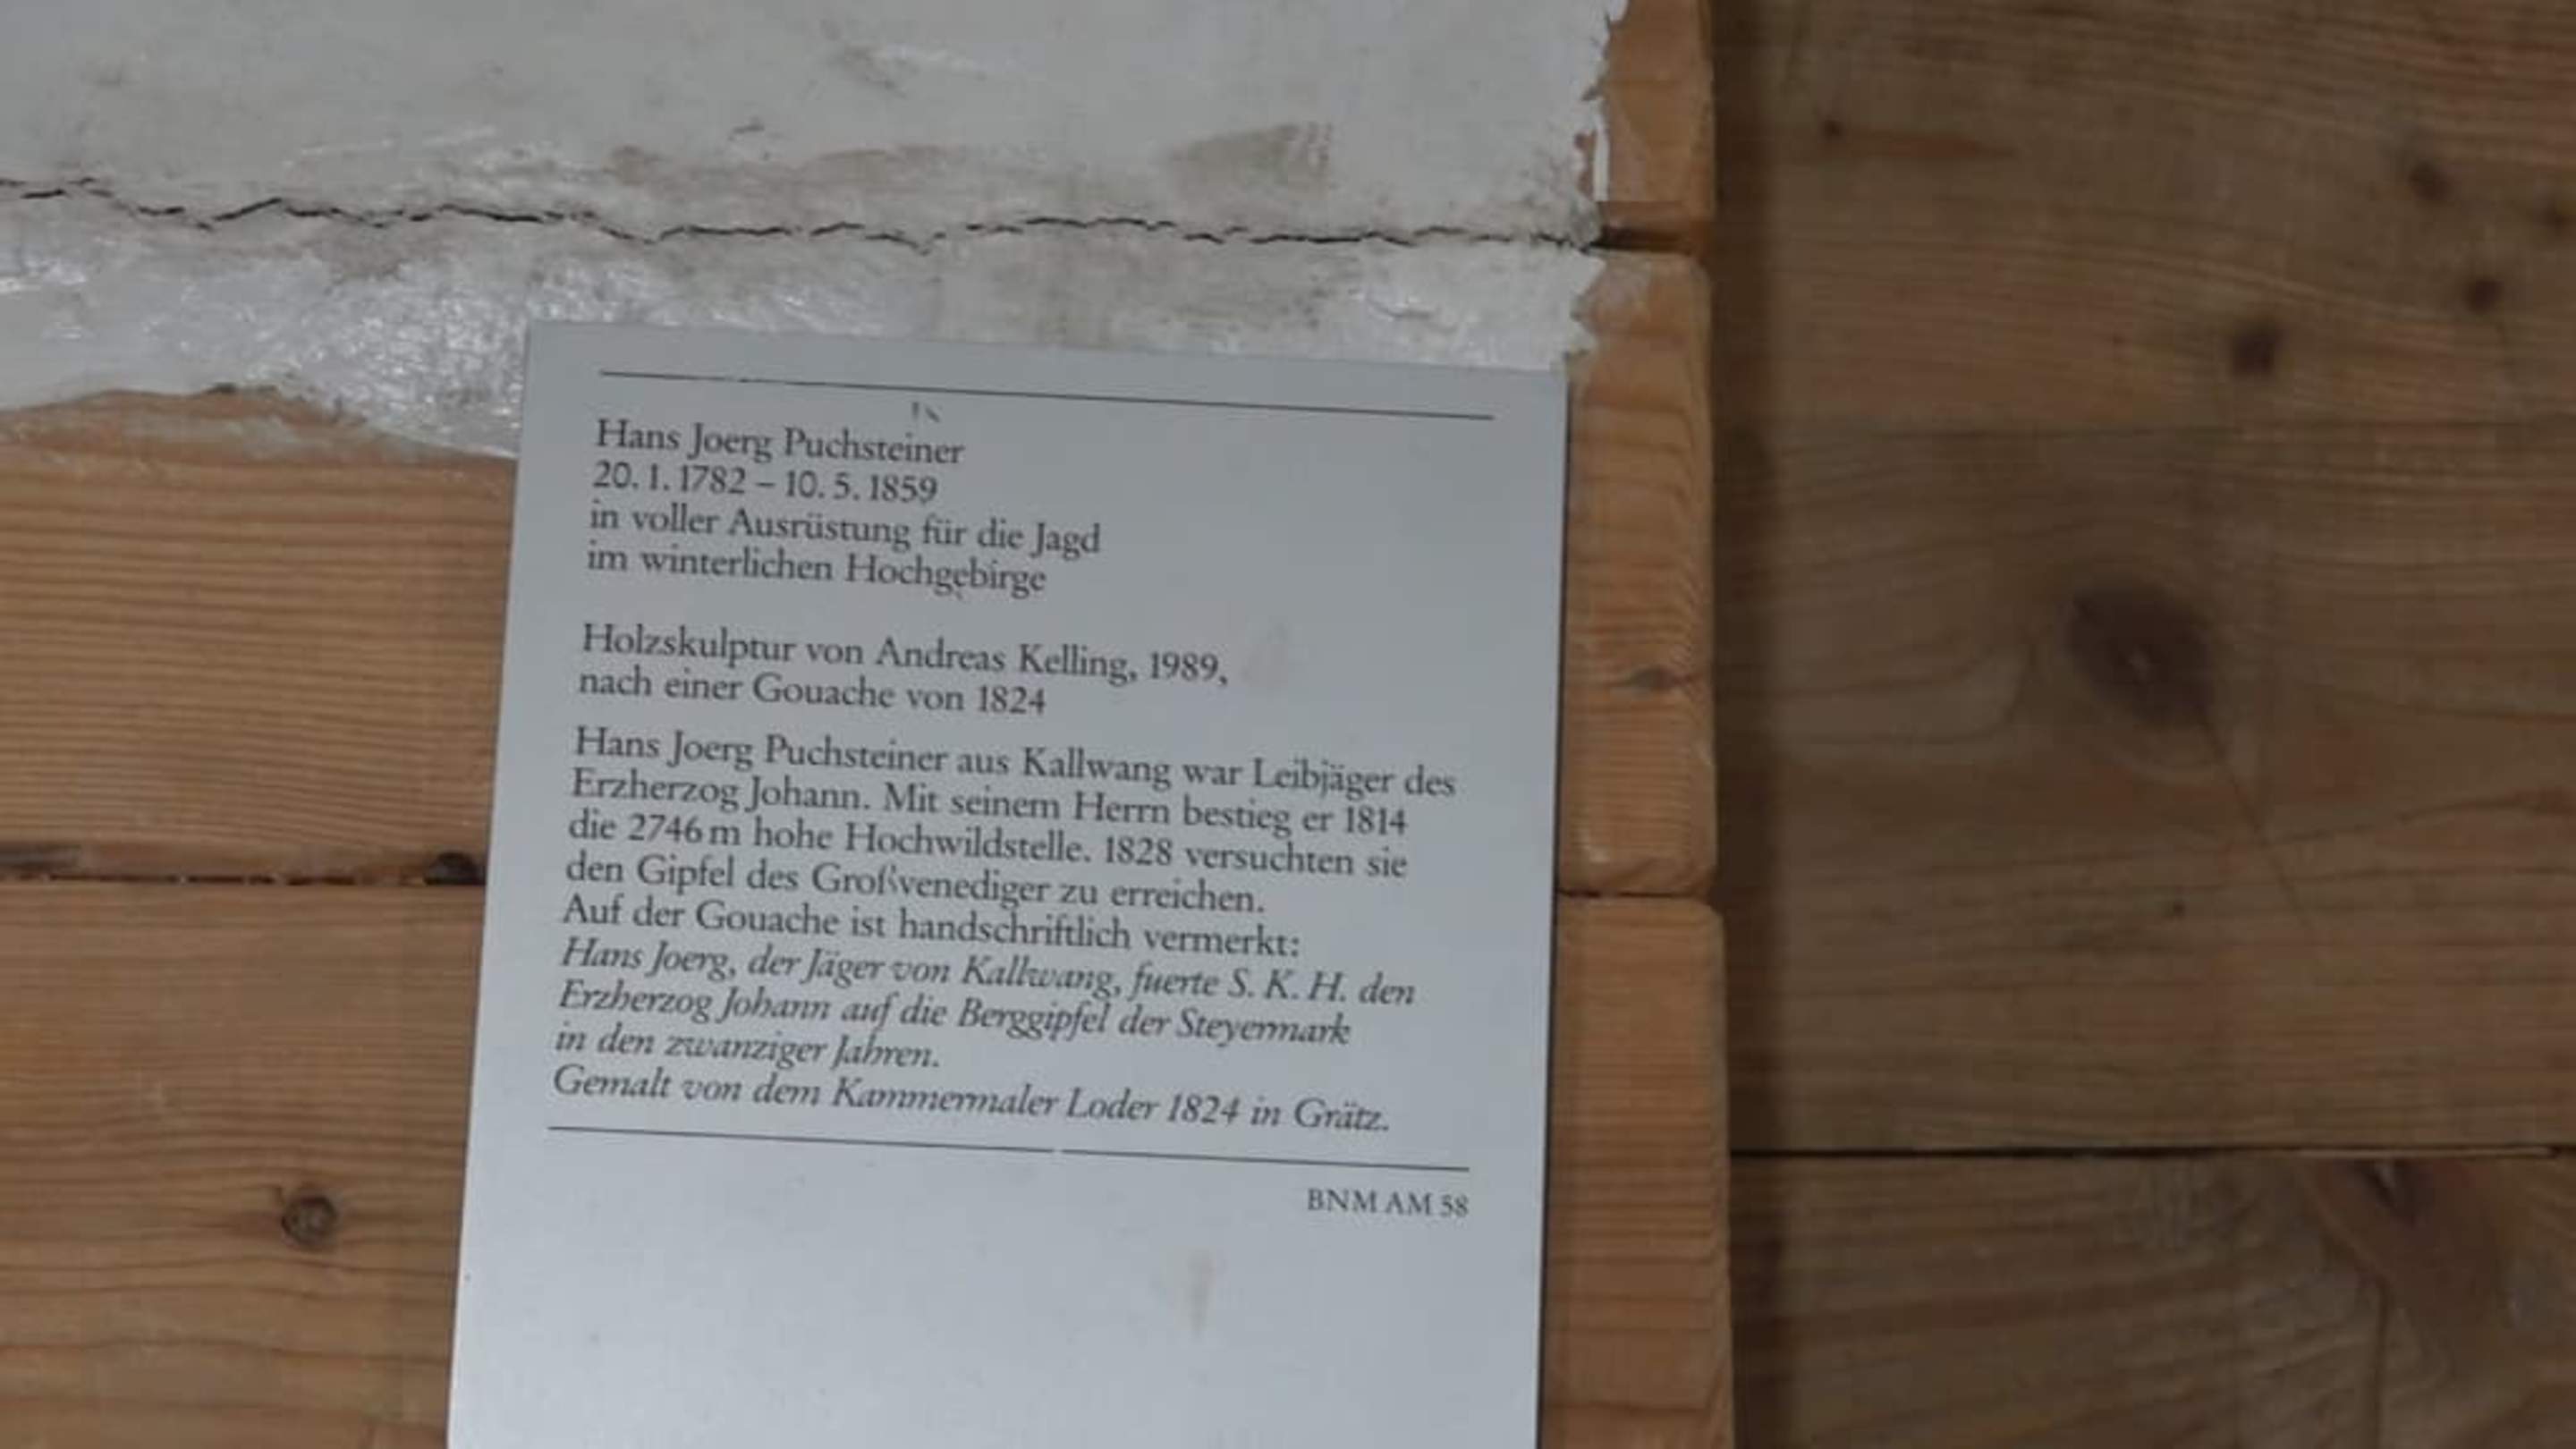 Hans Joerg Puchsteiner
20. 1. 1782 – 10. 5. 1859
in voller Ausrüstung für die Jagd
im winterlichen Hochgebirge
Holzskulptur von Andreas Kelling, 1989,
nach einer Gouache von 1824
Hans Joerg Puchsteiner aus Kallwang war Leibjäger des
Erzherzog Johann. Mit seinem Herrn bestieg er 1814
die 2746 m hohe Hochwildstelle. 1828 versuchten sie
den Gipfel des Großvenediger zu erreichen.
Auf der Gouache ist handschriftlich vermerkt:
Hans Joerg, der Jäger von Kallwang, fuerte S. K. H. den
Erzherzog Johann auf die Berggipfel der Steyermark
in den zwanziger Jahren.
Gemalt von dem Kammermaler Loder 1824 in Grätz.
BNM AM 58